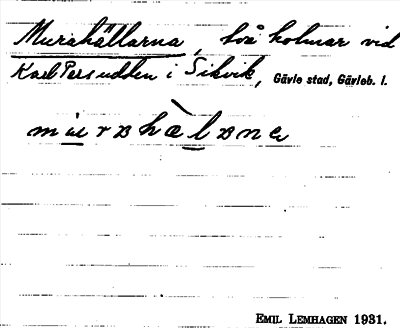 Murahällarna, två holmar vid
Karl Persudden i Sikvik, Gävle stad, Gävleb. l.
EMIL LEMHAGEN 1931.